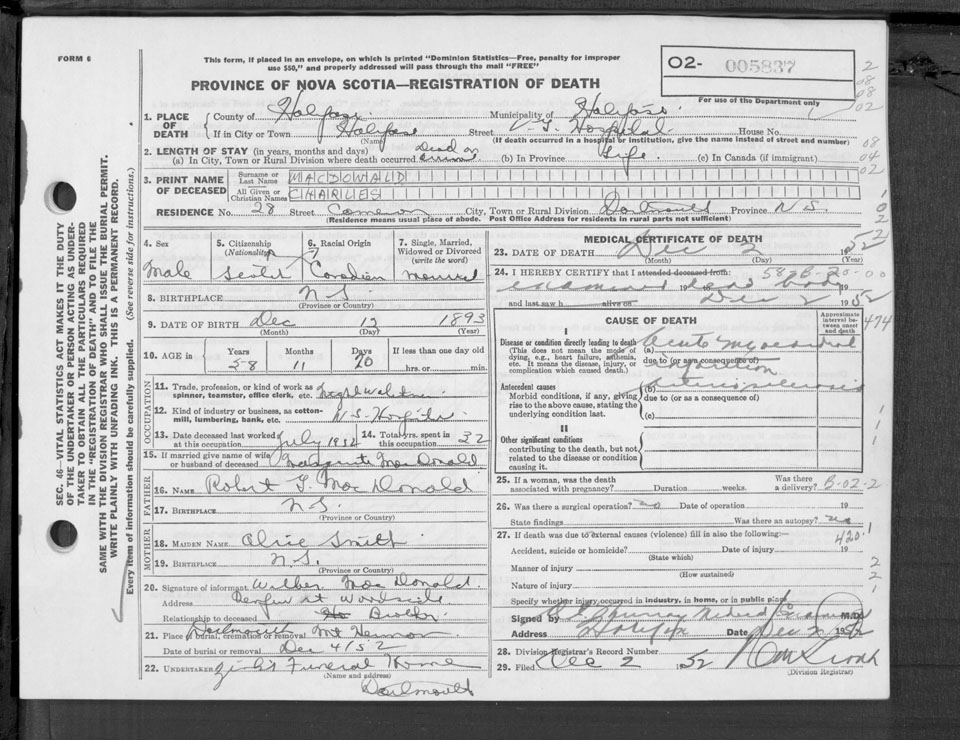 FORM 6
This form, if placed in an envelope, on which is printed "Dominion Statistics—Free, penalty for improper
use $50," and properly addressed will pass through the mail "FREE"
PROVINCE OF NOVA SCOTIA—REGISTRATION OF DEATH
O2- 005837
For use of the Department only
1. PLACE OF DEATH
County of Halifax Municipality of Halifax
If in City or Town Halifax Street V. G. Hospital House No.
(Name) (If death occurred in a hospital or institution, give the name instead of street and number)
2. LENGTH OF STAY (in years, months and days)
(a) In City, Town or Rural Division where death occurred Dead on (b) In Province Life (c) In Canada (if immigrant)
3. PRINT NAME OF DECEASED
Surname or Last Name MACDONALD
All Given or Christian Names CHARLES
RESIDENCE No. 28 Street Cameron City, Town or Rural Division Dartmouth Province N S
(Residence means usual place of abode. Post Office Address for residents in rural parts not sufficient)
4. Sex
Male
5. Citizenship
(Nationality)
6. Racial Origin
Canadian
7. Single, Married, Widowed or Divorced
(write the word)
Married
8. BIRTHPLACE N.S.
(Province or Country)
9. DATE OF BIRTH Dec 12 1893
(Month) (Day) (Year)
10. AGE in
Years 58 Months 11 Days 20
If less than one day old
hrs. or min.
OCCUPATION
11. Trade, profession, or kind of work as spinner, teamster, office clerk, etc.
12. Kind of industry or business, as cotton-mill, lumbering, bank, etc. N.S. Hospital
13. Date deceased last worked at this occupation July 1952 14. Total yrs. spent in this occupation 32
15. If married give name of wife or husband of deceased Marguerite MacDonald
FATHER
16. NAME Robert MacDonald
17. BIRTHPLACE N.S.
(Province or Country)
MOTHER
18. MAIDEN NAME Alice Smith
19. BIRTHPLACE N.S.
(Province or Country)
20. Signature of informant Wilber MacDonald
Address Woodside
Relationship to deceased Brother
21. Place of burial, cremation or removal Dartmouth Mt Hermon
Date of burial or removal Dec 4/52
22. UNDERTAKER Funeral Home
(Name and address)
Dartmouth
MEDICAL CERTIFICATE OF DEATH
23. DATE OF DEATH Dec 2 1952
(Month) (Day) (Year)
24. I HEREBY CERTIFY that I attended deceased from:
examined dead body 19
and last saw h alive on Dec 2 1952
CAUSE OF DEATH
Approximate interval between onset and death
I
Disease or condition directly leading to death
(This does not mean the mode of dying, e.g., heart failure, asthenia, etc. It means the disease, injury, or complication which caused death.)
(a) Acute myocardial
due to (or as a consequence of) infarction
Antecedent causes
Morbid conditions, if any, giving rise to the above cause, stating the underlying condition last.
(b) arteriosclerosis
due to (or as a consequence of)
(c)
II
Other significant conditions
contributing to the death, but not related to the disease or condition causing it.
25. If a woman, was the death associated with pregnancy? Duration weeks. Was there a delivery? B-02-2
26. Was there a surgical operation? no Date of operation 19
State findings Was there an autopsy? no
27. If death was due to external causes (violence) fill in also the following:—
420.1
Accident, suicide or homicide? Date of injury 19
(State which)
Manner of injury
(How sustained)
Nature of injury
Specify whether injury occurred in industry, in home, or in public place
Signed by Murray Medical Examiner M.D.
Address Halifax Date Dec 2 1952
28. Division Registrar's Record Number
29. Filed Dec 2 1952
(Division Registrar)
SEC. 46—VITAL STATISTICS ACT MAKES IT THE DUTY
OF THE UNDERTAKER OR PERSON ACTING AS UNDER-
TAKER TO OBTAIN ALL THE PARTICULARS REQUIRED
IN THE "REGISTRATION OF DEATH" AND TO FILE THE
SAME WITH THE DIVISION REGISTRAR WHO SHALL ISSUE THE BURIAL PERMIT.
WRITE PLAINLY WITH UNFADING INK. THIS IS A PERMANENT RECORD.
Every item of information should be carefully supplied. (See reverse side for instructions.)